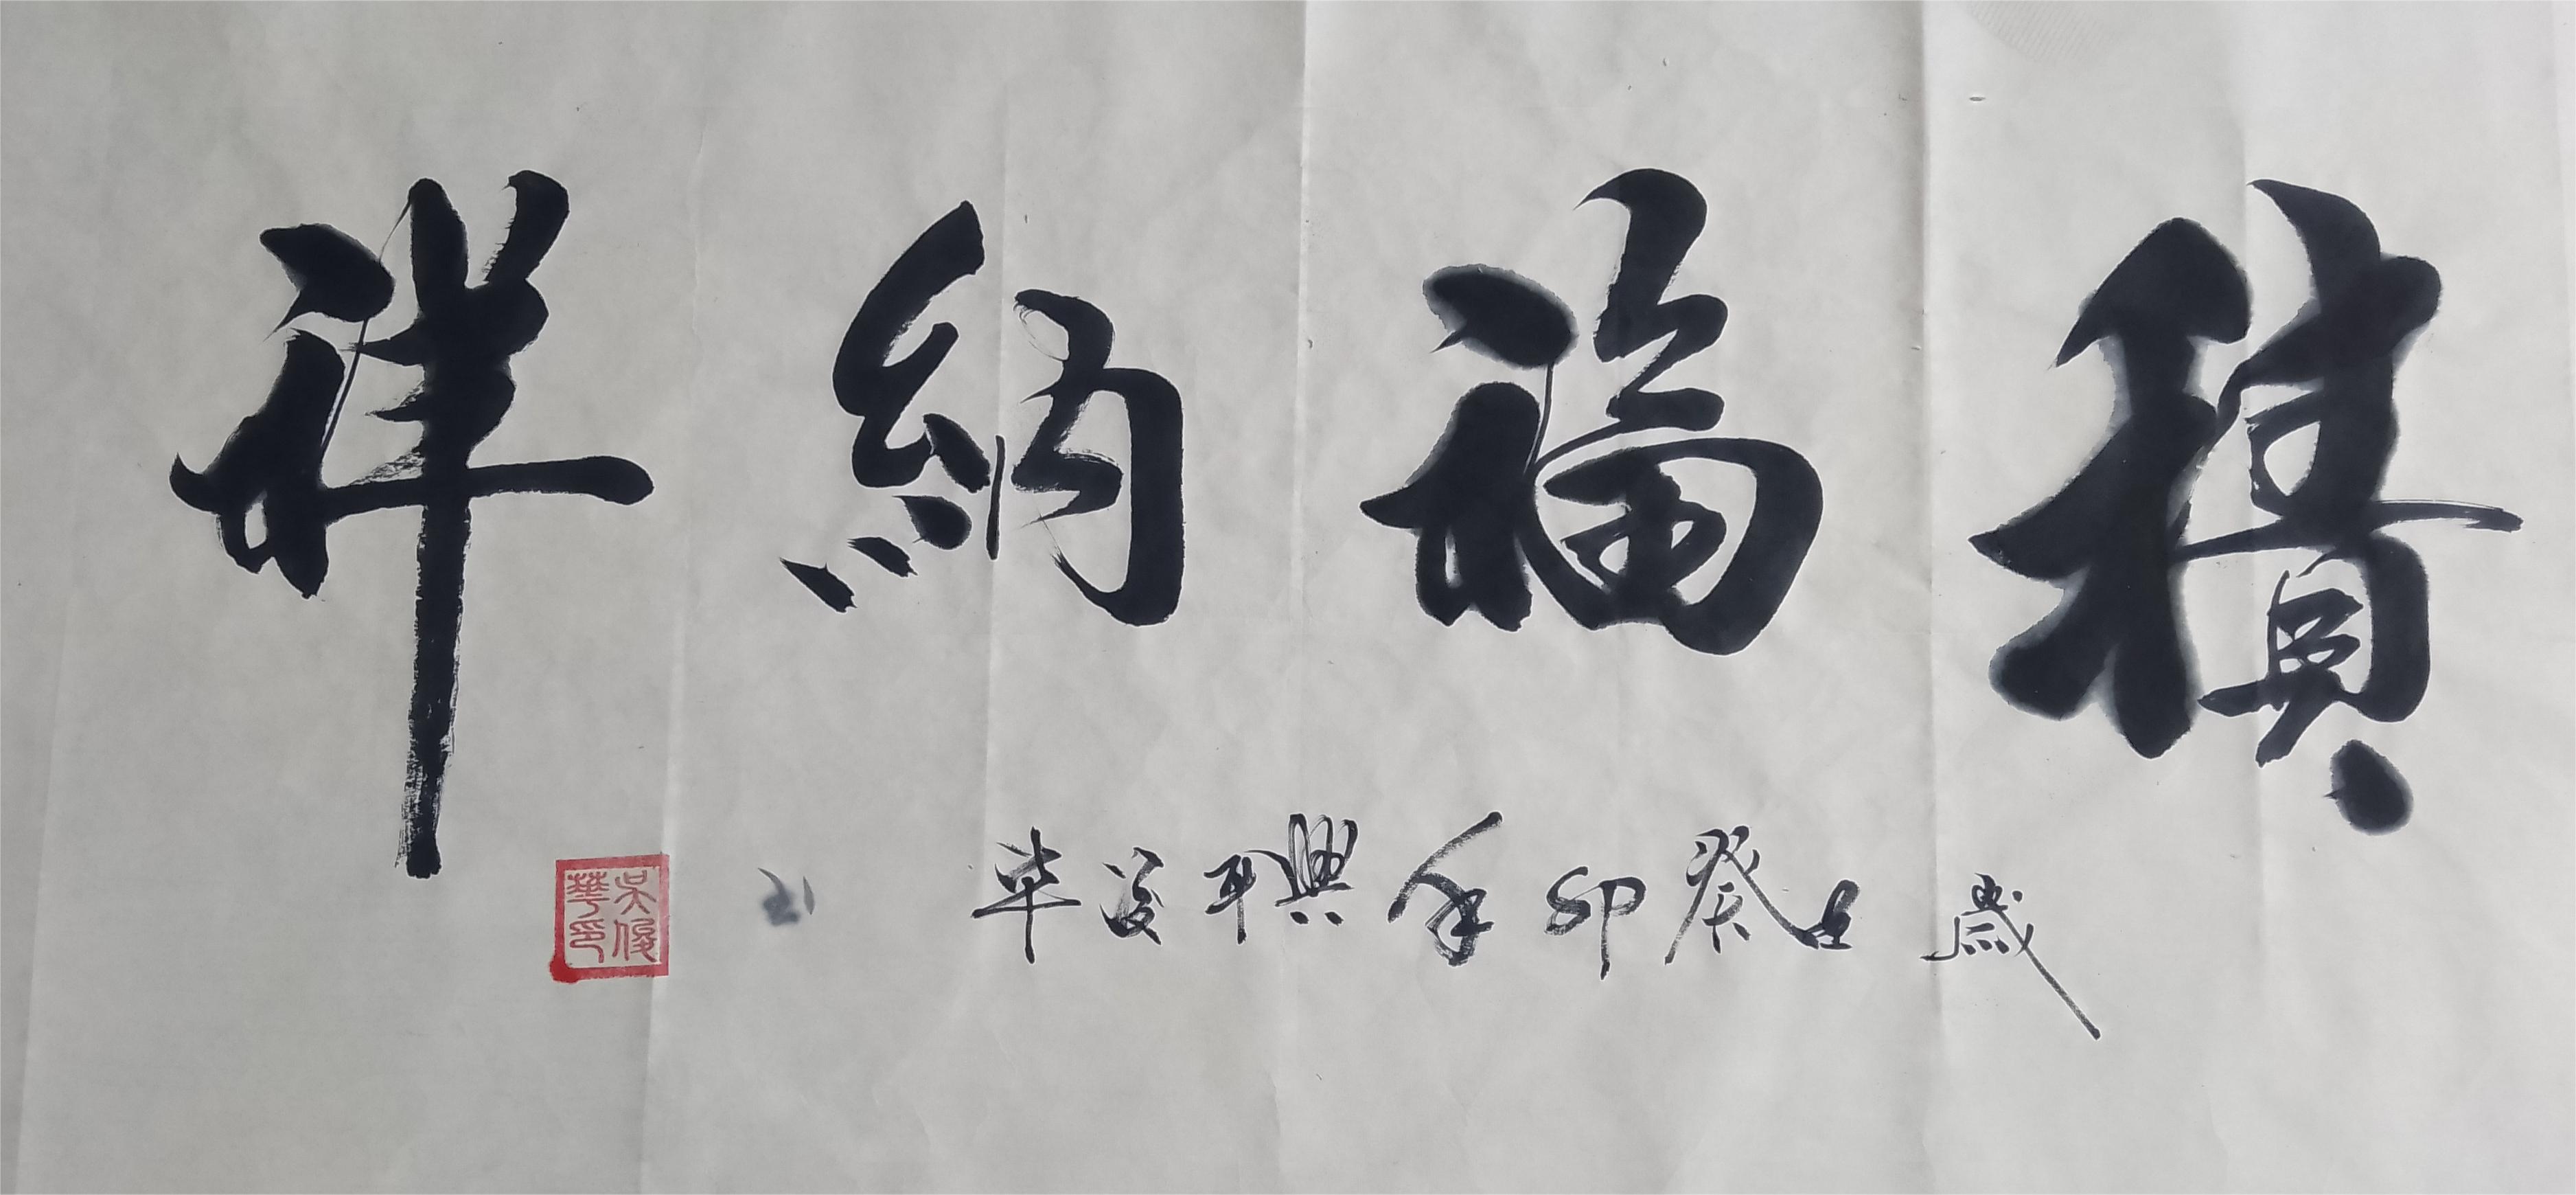 積福納祥
歲在癸卯年興耳俊華
吳俊華印